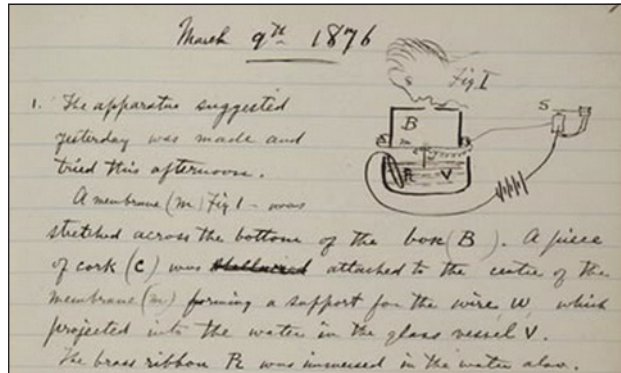 March 9th 1876
Fig I
1. The apparatus suggested
yesterday was made and
tried this afternoon.
A membrane (m) Fig 1 - was
stretched across the bottom of the box (B). A piece
of cork (C) was attached to the centre of the
membrane (m) forming a support for the wire W, which
projected into the water in the glass vessel V.
The brass ribbon R was immersed in the water also.
B
m
S
R
V